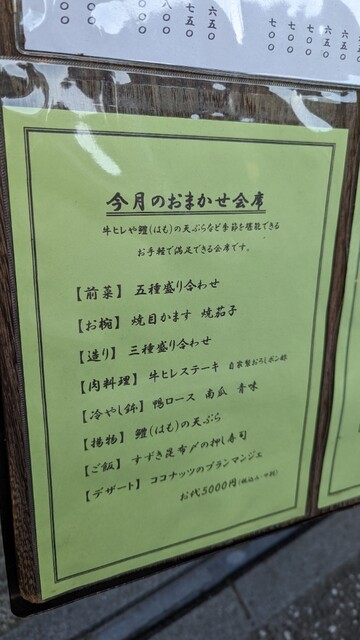 今月のおまかせ会席
牛ヒレや鱧(はも)の天ぷらなど季節を堪能できる
お手軽で満足できる会席です。
【前菜】 五種盛り合わせ
【お椀】 焼目かます 焼茄子
【造り】 三種盛り合わせ
【肉料理】 牛ヒレステーキ 自家製おろしポン酢
【冷やし鉢】 鴨ロース 南瓜 青味
【揚物】 鱧(はも)の天ぷら
【ご飯】 すずき昆布〆の押し寿司
【デザート】 ココナッツのブランマンジェ
お代5000円